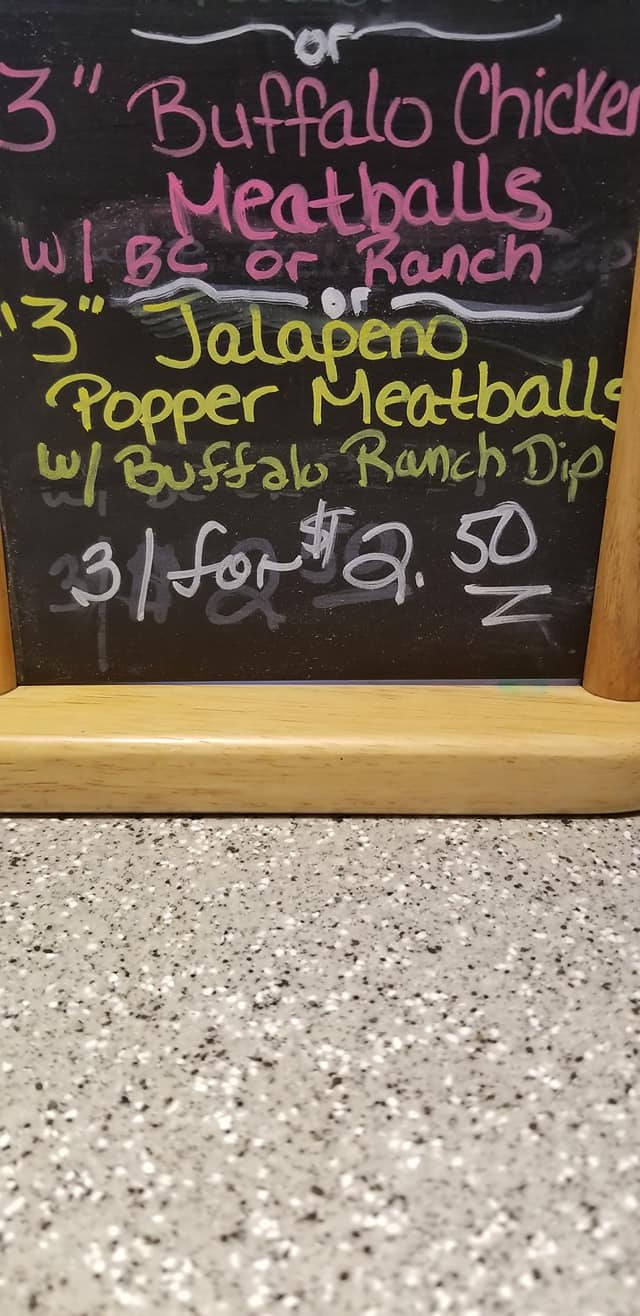 or
3" Buffalo Chicken
Meatballs
w/ BC or Ranch
or
"3" Jalapeno
Popper Meatballs
w/ Buffalo Ranch Dip
3/for $2.50